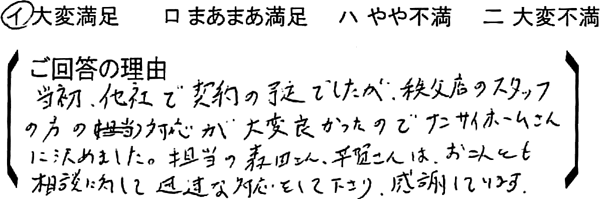 イ 大変満足 ロ まあまあ満足 ハ やや不満 ニ 大変不満
ご回答の理由
当初、他社で契約の予定でしたが、秩父店のスタッフ
の方の対応が大変良かったのでナンサイホームさん
に決めました。担当の森田さん、平賀さんは、お二人とも
相談に対して迅速な対応をして下さり、感謝しています。